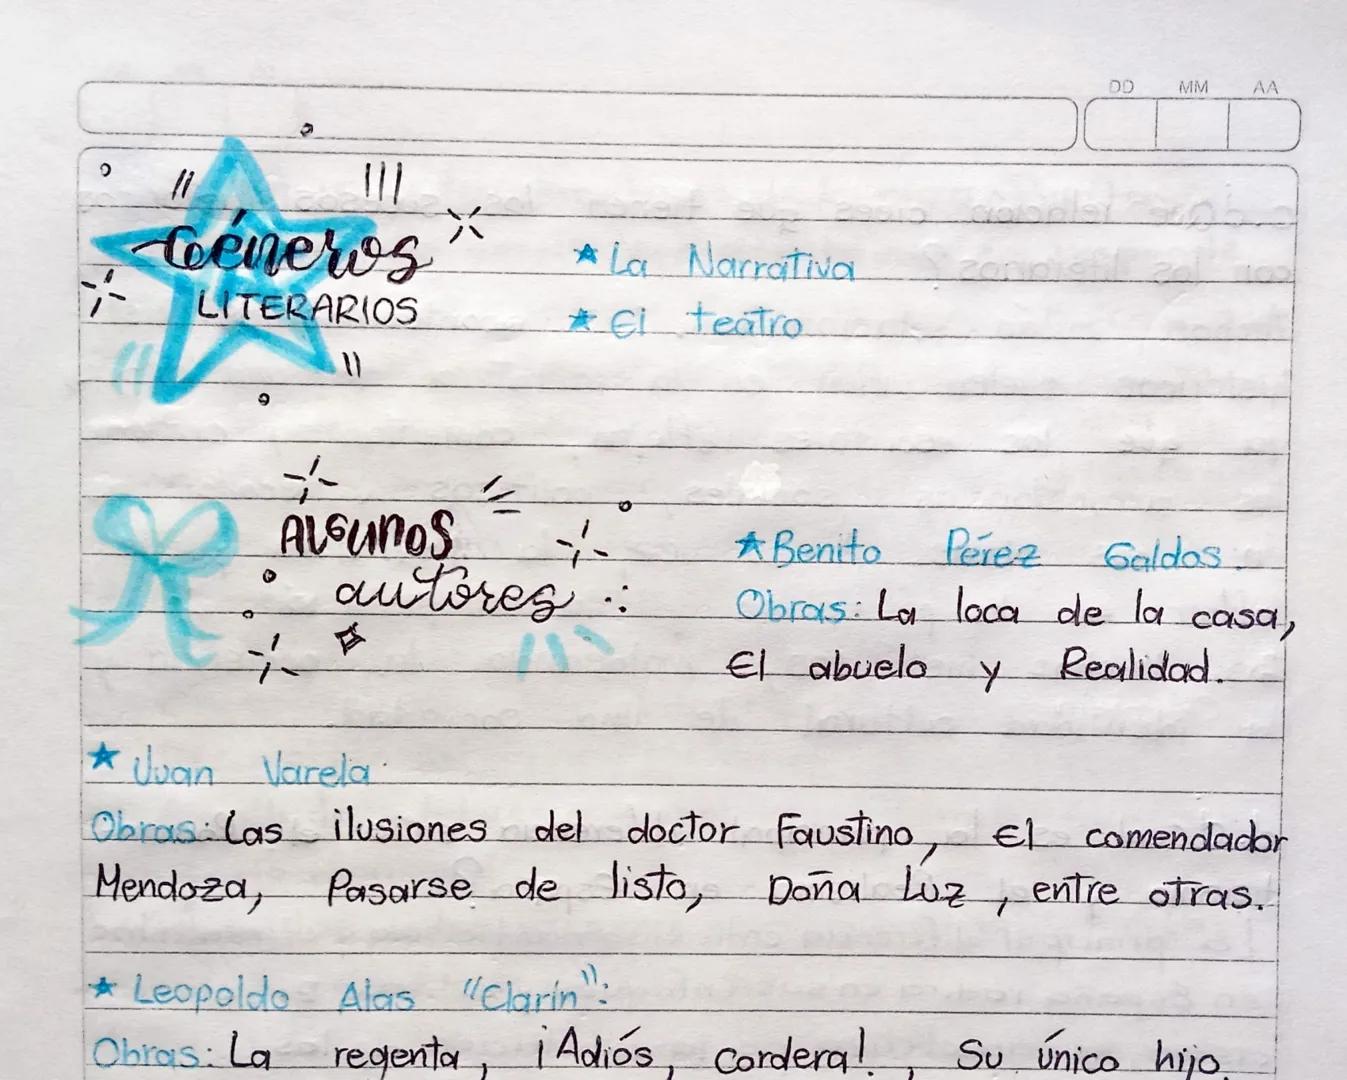 DD MM AA
Géneros
LITERARIOS
★ La Narrativa
★ El teatro
Algunos
autores
★ Benito Pérez Galdos.
Obras: La loca de la casa,
El abuelo y Realidad.
★ Juan Varela
Obras: Las ilusiones del doctor Faustino, El comendador
Mendoza, Pasarse de listo, Doña Luz, entre otras.
★ Leopoldo Alas "Clarín":
Obras: La regenta, ¡Adiós, Cordera!, Su único hijo.